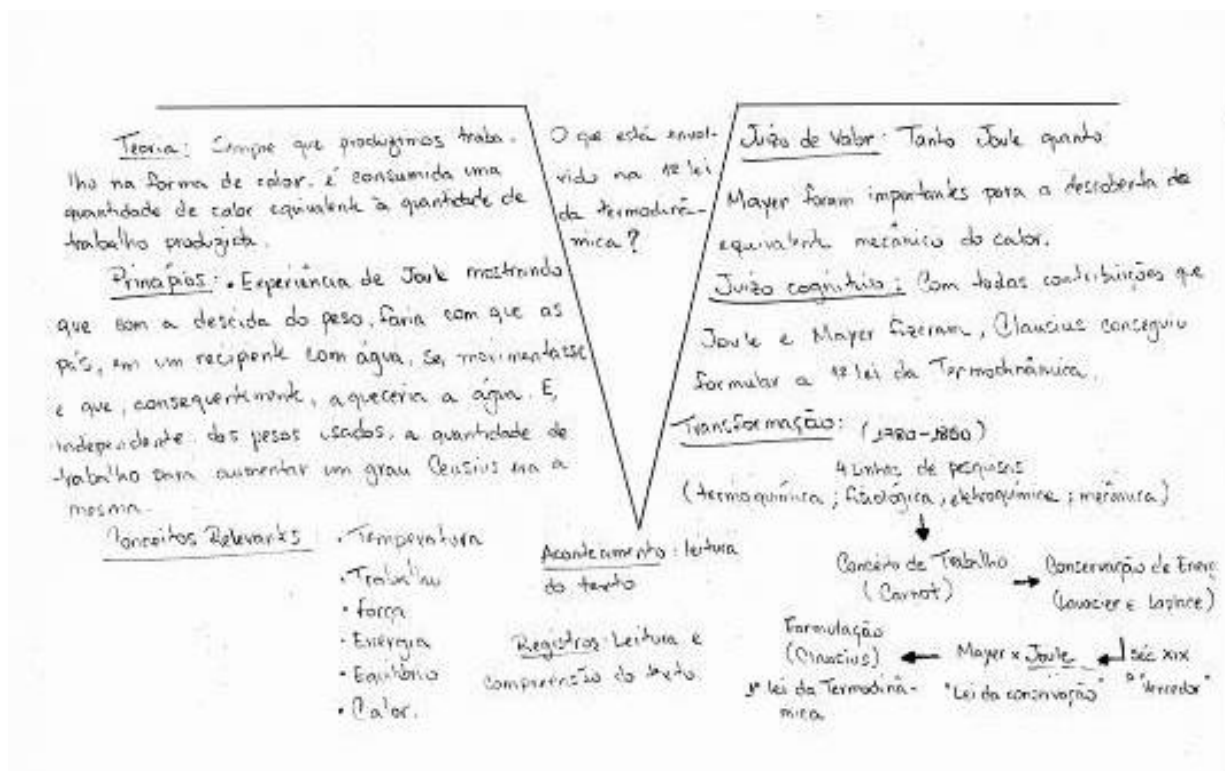 Teoria: Sempre que produzimos traba-
lho na forma de calor, é consumida uma
quantidade de calor equivalente à quantidade de
trabalho produzida.
Princípios: • Experiência de Joule mostrando
que com a descida do peso, faria com que as
pás, em um recipiente com água, se movimentasse
e que, consequentemente, aqueceria a água. E,
independente dos pesos usados, a quantidade de
trabalho para aumentar um grau Censius era a
mesma.
Conceitos Relevantes:
• Temperatura
• Trabalho
• força
• Energia
• Equilíbrio
• Calor.
O que está envol-
vido na 1ª lei
da termodinâ-
mica?
Acontecimento: leitura
do texto
Registros: Leitura e
compreensão do texto.
Juízo de Valor: Tanto Joule quanto
Mayer foram importantes para a descoberta do
equivalente mecânico do calor.
Juízo cognitivo: Com todas contribuições que
Joule e Mayer fizeram, Clausius conseguiu
formular a 1ª lei da Termodinâmica.
Transformação: (1780-1860)
4 Linhas de pesquisas
(termoquímica; fisiológica; eletroquímica; mecânica)
Conceito de Trabalho
(Carnot)
Conservação de Energ
(Lavosier e Laplace)
séc XIX
o "vencedor"
Mayer x Joule
"Lei da conservação"
Formulação
(Clausius)
1ª lei da Termodinâ-
mica